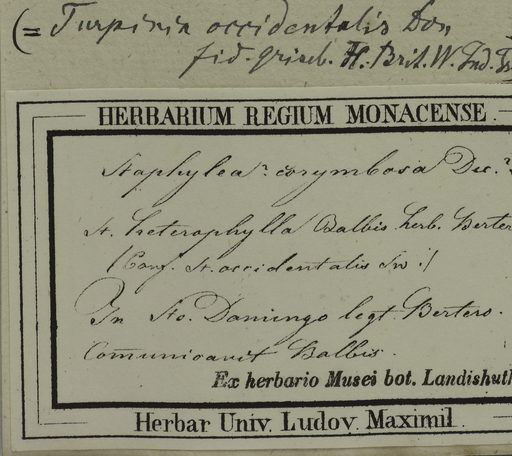 (= Turpinia occidentalis Don,
fid. griseb. H. Brit. W. Ind.
HERBARIUM REGIUM MONACENSE.
Staphylea? corymbosa Dec.?
St. heterophylla Balbis herb. Berter
(Conf. St. occidentalis Sw:)
In Sto. Domingo legt Bertero.
Communicavit Balbis.
Ex herbario Musei bot. Landishuth
Herbar Univ. Ludov. Maximil.